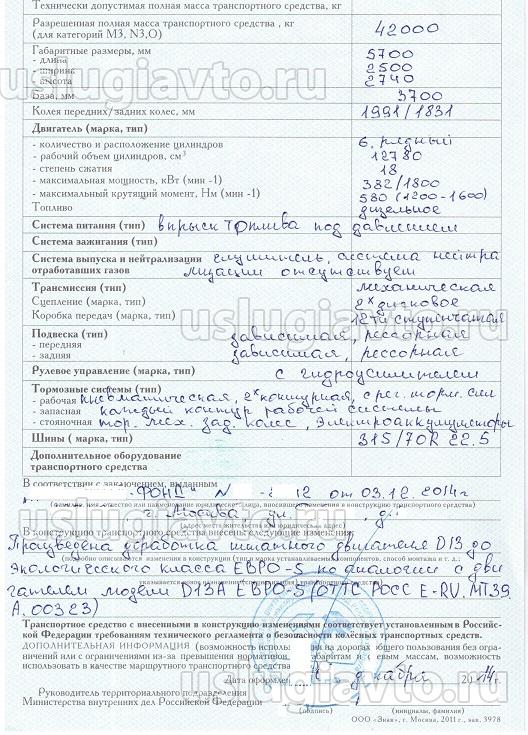 Технически допустимая полная масса транспортного средства, кг
Разрешенная полная масса транспортного средства , кг
(для категорий М3, N3,О) 42000
Габаритные размеры, мм
- длина 5700
- ширина 2500
- высота 2740
База, мм 3700
Колея передних/задних колес, мм 1991/1831
Двигатель (марка, тип)
- количество и расположение цилиндров 6, рядный
- рабочий объем цилиндров, см³ 12780
- степень сжатия 18
- максимальная мощность, кВт (мин -1) 382/1800
- максимальный крутящий момент, Нм (мин -1) 580 (1200-1600)
Топливо дизельное
Система питания (тип) впрыск топлива под давлением
Система зажигания (тип)
Система выпуска и нейтрализации глушитель, система нейтра
отработавших газов лизации отсутствует
Трансмиссия (тип) механическая
Сцепление (марка, тип) 2х дисковое
Коробка передач (марка, тип) 12ти ступенчатая
Подвеска (тип)
- передняя зависимая, рессорная
- задняя зависимая, рессорная
Рулевое управление (марка, тип) с гидроусилителем
Тормозные системы (тип)
- рабочая пневматическая, 2х контурная, с рег. торм. сил
- запасная каждый контур рабочей системы
- стояночная тор. мех. зад. колес,
Шины ( марка, тип) 315/70R 22.5
Дополнительное оборудование
транспортного средства
В соответствии с заключением, выданным
"ФОНД" N 12 от 03.12.2014г
г. Москва ул. д.
(адрес места жительства или юридический адрес)
В конструкцию транспортного средства внесены следующие изменения:
Произведена доработка штатного двигателя D13 до
экологического класса ЕВРО-5 по аналогии с дви
гателем модели D13A ЕВРО-5 (ОТТС РОСС E-RU.МТ39
А.00323)
Транспортное средство с внесенными в конструкцию изменениями соответствует установленным в Российс-
кой Федерации требованиям технического регламента о безопасности колёсных транспортных средств.
ДОПОЛНИТЕЛЬНАЯ ИНФОРМАЦИЯ (возможность использования на дорогах общего пользования без огра-
ничений или с ограничениями из-за превышения нормативов габаритам и осевым массам, возможность
использовать в качестве маршрутного транспортного средства
Дата оформления декабря 2014г.
Руководитель территориального подразделения
Министерства внутренних дел Российской Федерации
(подпись) (инициалы, фамилия)
ООО «Знак», г. Москва, 2011 г., зак. 3978
uslugiavto.ru
uslugiavto.ru
uslugiavto.ru
uslugiavto.ru